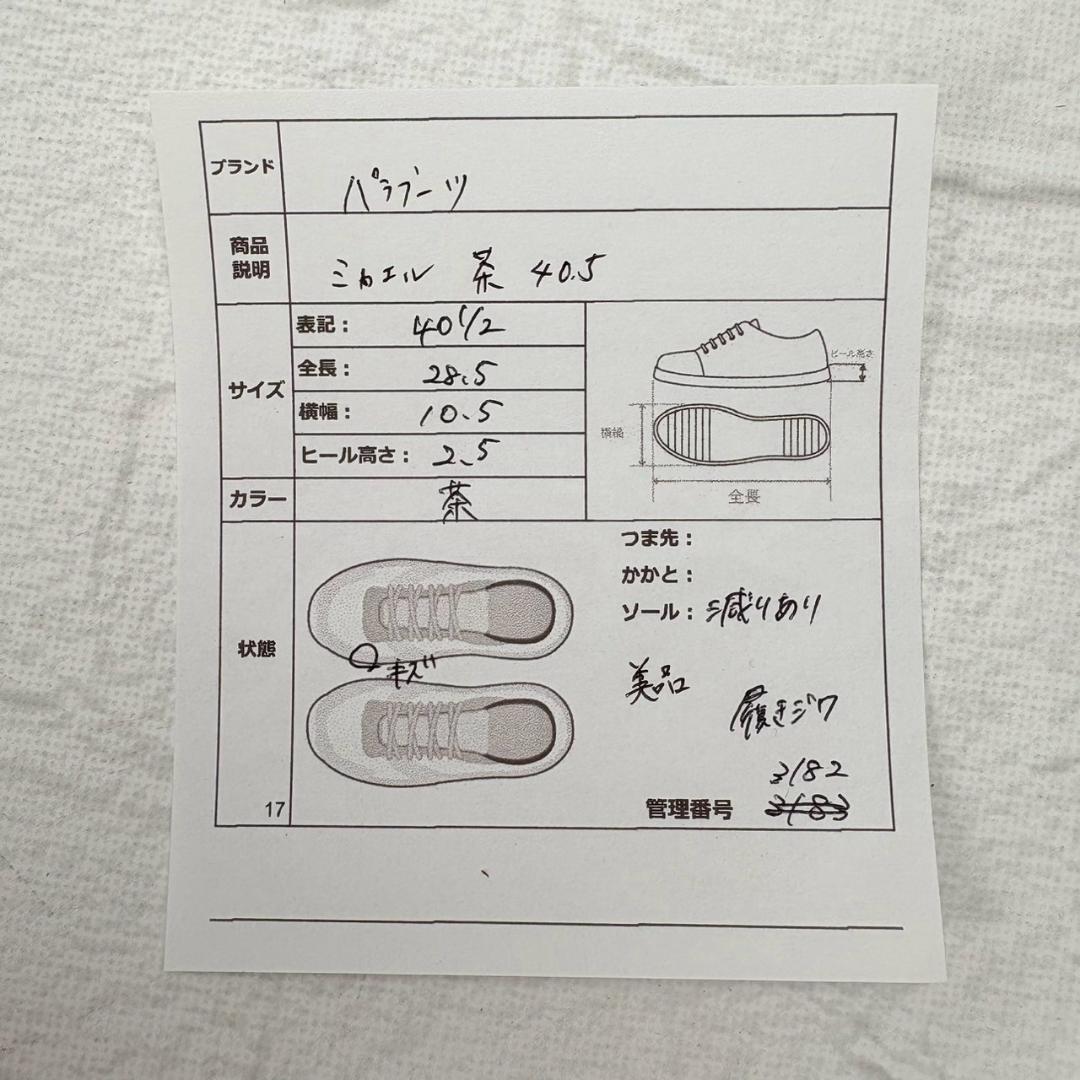 ブランド パラブーツ
商品説明 ミカエル 茶 40.5
サイズ
表記： 40 1/2
全長： 28.5
横幅： 10.5
ヒール高さ： 2.5
ヒール高さ
横幅
全長
カラー 茶
状態
つま先：
かかと：
ソール：減りあり
キズ
美品
履きジワ
3182
管理番号 3183
17